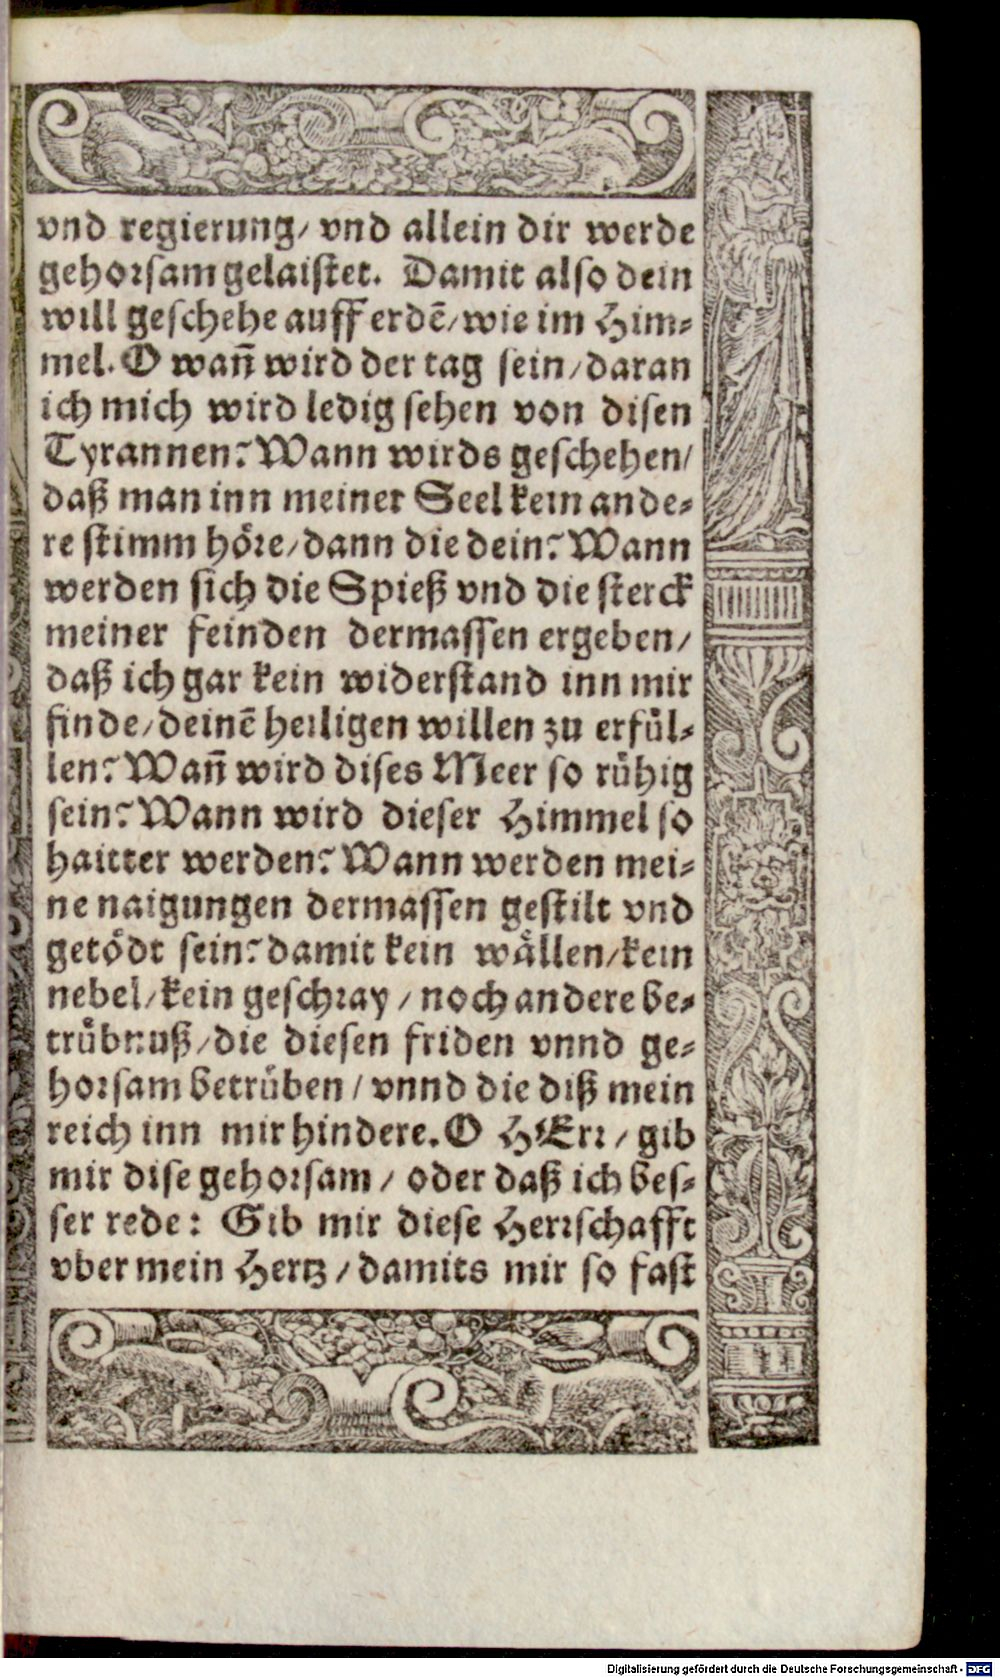 vnd regierung/ vnd allein dir werde
gehorsam gelaistet. Damit also dein
will geschehe auff erdē/ wie im Him⸗
mel. O wañ wird der tag sein/ daran
ich mich wird ledig sehen von disen
Tyrannen? Wann wirds geschehen/
daß man inn meiner Seel kein ande⸗
re stimm hoͤre/ dann die dein? Wann
werden sich die Spieß vnd die sterck
meiner feinden dermassen ergeben/
daß ich gar kein widerstand inn mir
finde/ deinē heiligen willen zu erfuͤl⸗
len? Wañ wird dises Meer so ruͤhig
sein? Wann wird dieser Himmel so
haitter werden? Wann werden mei⸗
ne naigungen dermassen gestilt vnd
getoͤdt sein? damit kein waͤllen/ kein
nebel/ kein geschray / noch andere be⸗
truͤbnuß/ die diesen friden vnnd ge⸗
horsam betruͤben / vnnd die diß mein
reich inn mir hindere. O HErr / gib
mir dise gehorsam / oder daß ich bes⸗
ser rede: Gib mir diese Herrschafft
vber mein Hertz / damits mir so fast
Digitalisierung gefördert durch die Deutsche Forschungsgemeinschaft - DFG